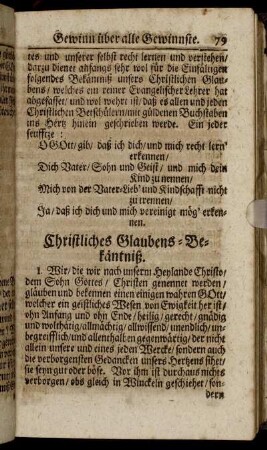 Gewinn über alle Gewinnste. 79
tes und unserer selbst recht lernen und verstehen/
darzu dienet anfangs sehr wol für die Einfältigen
folgendes Bekäntniß unsers Christlichen Glau-
bens/ welches ein reiner Evangelischer Lehrer hat
abgefasset/ und wol wehrt ist/ daß es allen und jeden
Christlichen Bet-schülern/ mit güldenen Buchstaben
ins Hertz hinein geschrieben werde. Ein jeder
seufftze:
O GOtt/ gib/ daß ich dich/ und mich recht lern'
erkennen/
Dich Vater/ Sohn und Geist/ und mich dein
Kind zu nennen/
Mich von der Vater-Lieb' und Kindschafft nicht
zu trennen/
Ja/ daß ich dich und mich vereinigt mög' erken-
nen.
Christliches Glaubens-Be-
käntniß.
1. Wir/ die wir nach unserm Heylande Christo/
dem Sohn Gottes/ Christen genennet werden/
gläuben und bekennen einen einigen wahren GOtt/
welcher ein geistliches Wesen von Ewigkeit her ist/
ohn Anfang und ohn Ende/ heilig/ gerecht/ gnädig
und wolthätig/ allmächtig/ allwissend/ unendlich/ un-
begreifflich/ und allenthalben gegenwärtig/ der nicht
allein unsere und eines jeden Wercke/ sondern auch
die verborgensten Gedancken unsers Hertzens sihet/
sie seyn gut oder böse. Vor ihm ist durchaus nichts
verborgen/ obs gleich in Winckeln geschiehet/ son-
dern